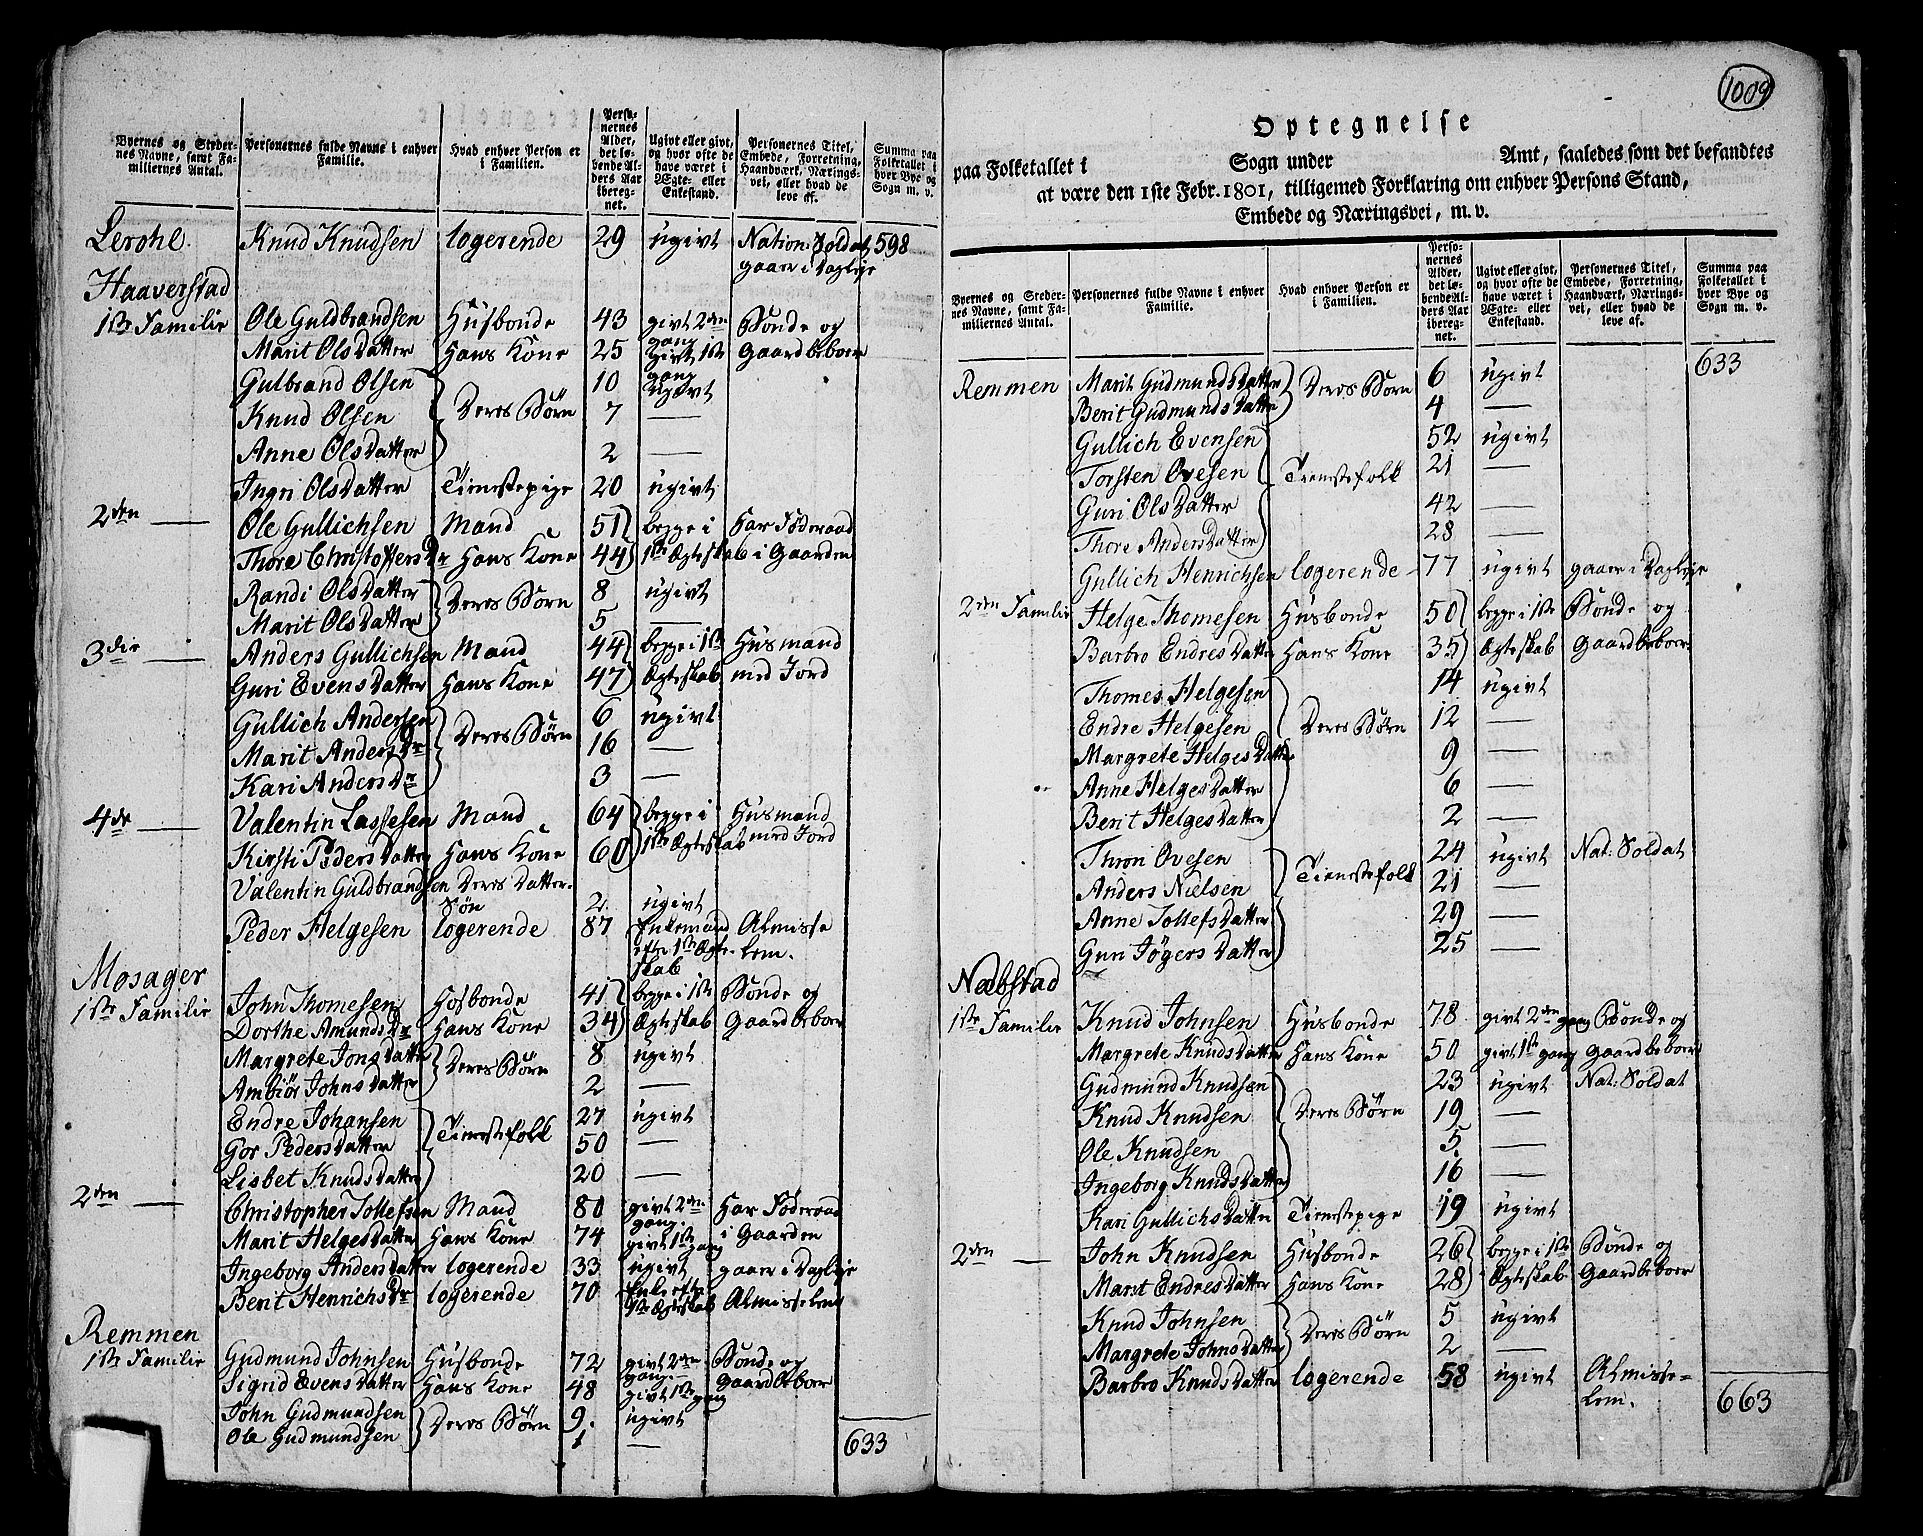 Byernes og Steder-
nes Navne, samt Fa-
miliernes Antal.
Personernes fulde Navne i enhver
Familie.
Hvad enhver Person er
i Familien.
Perso-
nernes
Alder,
det lø-
bende Al-
ders Aar
ibereg-
net.
Ugivt eller givt,
og hvor ofte de
have været i
Ægte- eller
Enkestand.
Personernes Titel,
Embede, Forretning,
Haandværk, Nærings-
vei, eller hvad de
leve af.
Summa paa
Folketallet i
hver Bye og
Sogn m. v.
Lerohl. Knud Knudsen logerende 29 ugivt Nation: Soldat 598
gaaer i Dagleje
Haaverstad
1ste Familie Ole Guldbrandsen Husbonde 43 givt 2den gang Bonde og
Marit Olsdatter Hans Kone 25 givt 1ste gang Gaardbeboer
Gulbrand Olsen } 10 ugivt
Knud Olsen } Deres Børn 7 —
Anne Olsdatter } 2 —
Ingri Olsdatter Tienestepige 20 ugivt
2den — Ole Gullichsen Mand 51 } begge i Har Föderaad
Thore Christoffersdr Hans Kone 44 } 1ste Ægteskab i Gaarden
Randi Olsdatter } Deres Børn 8 ugivt
Marit Olsdatter } 5 —
3die — Anders Gullichsen Mand 44 } begge i 1ste Husmand
Guri Evensdatter Hans Kone 47 } Ægteskab med Jord
Gullich Andersen } 6 ugivt
Marit Andersdr } Deres Børn 16 —
Kari Andersdr } 3 —
4de — Valentin Lassesen Mand 64 } begge i Husmand
Kirsti Pedersdatter Hans Kone 60 } 1ste Ægteskab med Jord
Valentin Guldbrandsen Deres Datter-
Søn 2 ugivt
Peder Helgesen logerende 87 Enkemand Almisse
efter 1ste Ægte- lem.
skab
Mosager
1ste Familie John Thomesen Hosbonde 41 } begge i 1ste Bonde og
Dorthe Amundsdr Hans Kone 34 } Ægteskab Gaardbeboer
Margrete Jonsdatter } Deres Børn 8 ugivt
Ambiør Johnsdatter } 2 —
Endre Johansen } 27 ugivt
Gor Pedersdatter } Tienestefolk 50 —
Lisbet Knudsdatter } 20 —
2den — Christopher Tollefsen Mand 80 givt 2den gang. Har Föderaad
Marit Helgesdatter Hans Kone 74 givt 1ste gang i Gaarden
Ingeborg Andersdatter logerende 33 ugivt gaaer i Dagleje
Berit Henrichsdr logerende 70 Enke efter
1ste Ægteskab Almisselem
Remmen
1ste Familie Gudmund Johnsen Husbonde 72 givt 2den gang Bonde og
Sigrid Evensdatter Hans Kone 48 givt 1ste gang Gaardbeboer
John Gudmundsen } Deres Børn 9. ugivt
Ole Gudmundsen } 1 — 633
1009
Optegnelse
paa Folketallet i Sogn under Amt, saaledes som det befandtes
at være den 1ste Febr. 1801, tilligemed Forklaring om enhver Persons Stand,
Embede og Næringsvei, m. v.
Byernes og Steder-
nes Navne, samt Fa-
miliernes Antal.
Personernes fulde Navne i enhver
Familie.
Hvad enhver Person er
i Familien.
Perso-
nernes
Alder,
det lø-
bende Al-
ders Aar
ibereg-
net.
Ugivt eller givt,
og hvor ofte de
have været i
Ægte- eller
Enkestand.
Personernes Titel,
Embede, Forretning,
Haandværk, Nærings-
vei, eller hvad de
leve af.
Summa paa
Folketallet i
hver Bye og
Sogn m. v.
633
Remmen Marit Gudmundsdatter } Deres Børn 6 ugivt
Berit Gudmundsdatter } 4 —
Gullich Evensen } 52 ugivt
Torsten Ovesen } Tienestefolk 21 —
Guri Olsdatter } 42 —
Thore Andersdatter } 28 —
Gullich Henrichsen logerende 77 ugivt gaaer i Dagleje
2den Familie Helge Thomesen Husbonde 50 } begge i 1ste Bonde og
Barbro Endresdatter Hans Kone 35 } Ægteskab Gaardbeboer
Thomes Helgesen } 14 ugivt
Endre Helgesen } Deres Børn 12 —
Margrete Helgesdatter } 9 —
Anne Helgesdatter } 6 —
Berit Helgesdatter } 2 —
Thron Ovesen } 24 ugivt Nat: Soldat
Anders Nielsen } Tienestefolk 21 —
Anne Tollefsdatter } 29 —
Guri Jögersdatter } 25 —
Næbstad
1ste Familie Knud Johnsen Husbonde 78 givt 2den gang Bonde og
Margrete Knudsdatter Hans Kone 50 givt 1ste gang Gaardbeboer
Gudmund Knudsen } 23 ugivt Nat: Soldat
Knud Knudsen } Deres Børn 19 —
Ole Knudsen } 5. —
Ingeborg Knudsdatter } 16 —
Kari Gullichsdatter Tienestepige 19 ugivt
2den — John Knudsen Husbonde 26 } begge i 1ste Bonde og
Marit Endresdatter Hans Kone 28 } Ægteskab Gaardbeboer
Knud Johnsen } Deres Børn 5 ugivt
Margrete Johnsdatter } 2 —
Barbro Knudsdatter logerende 58 ugivt Almisse-
lem. 663